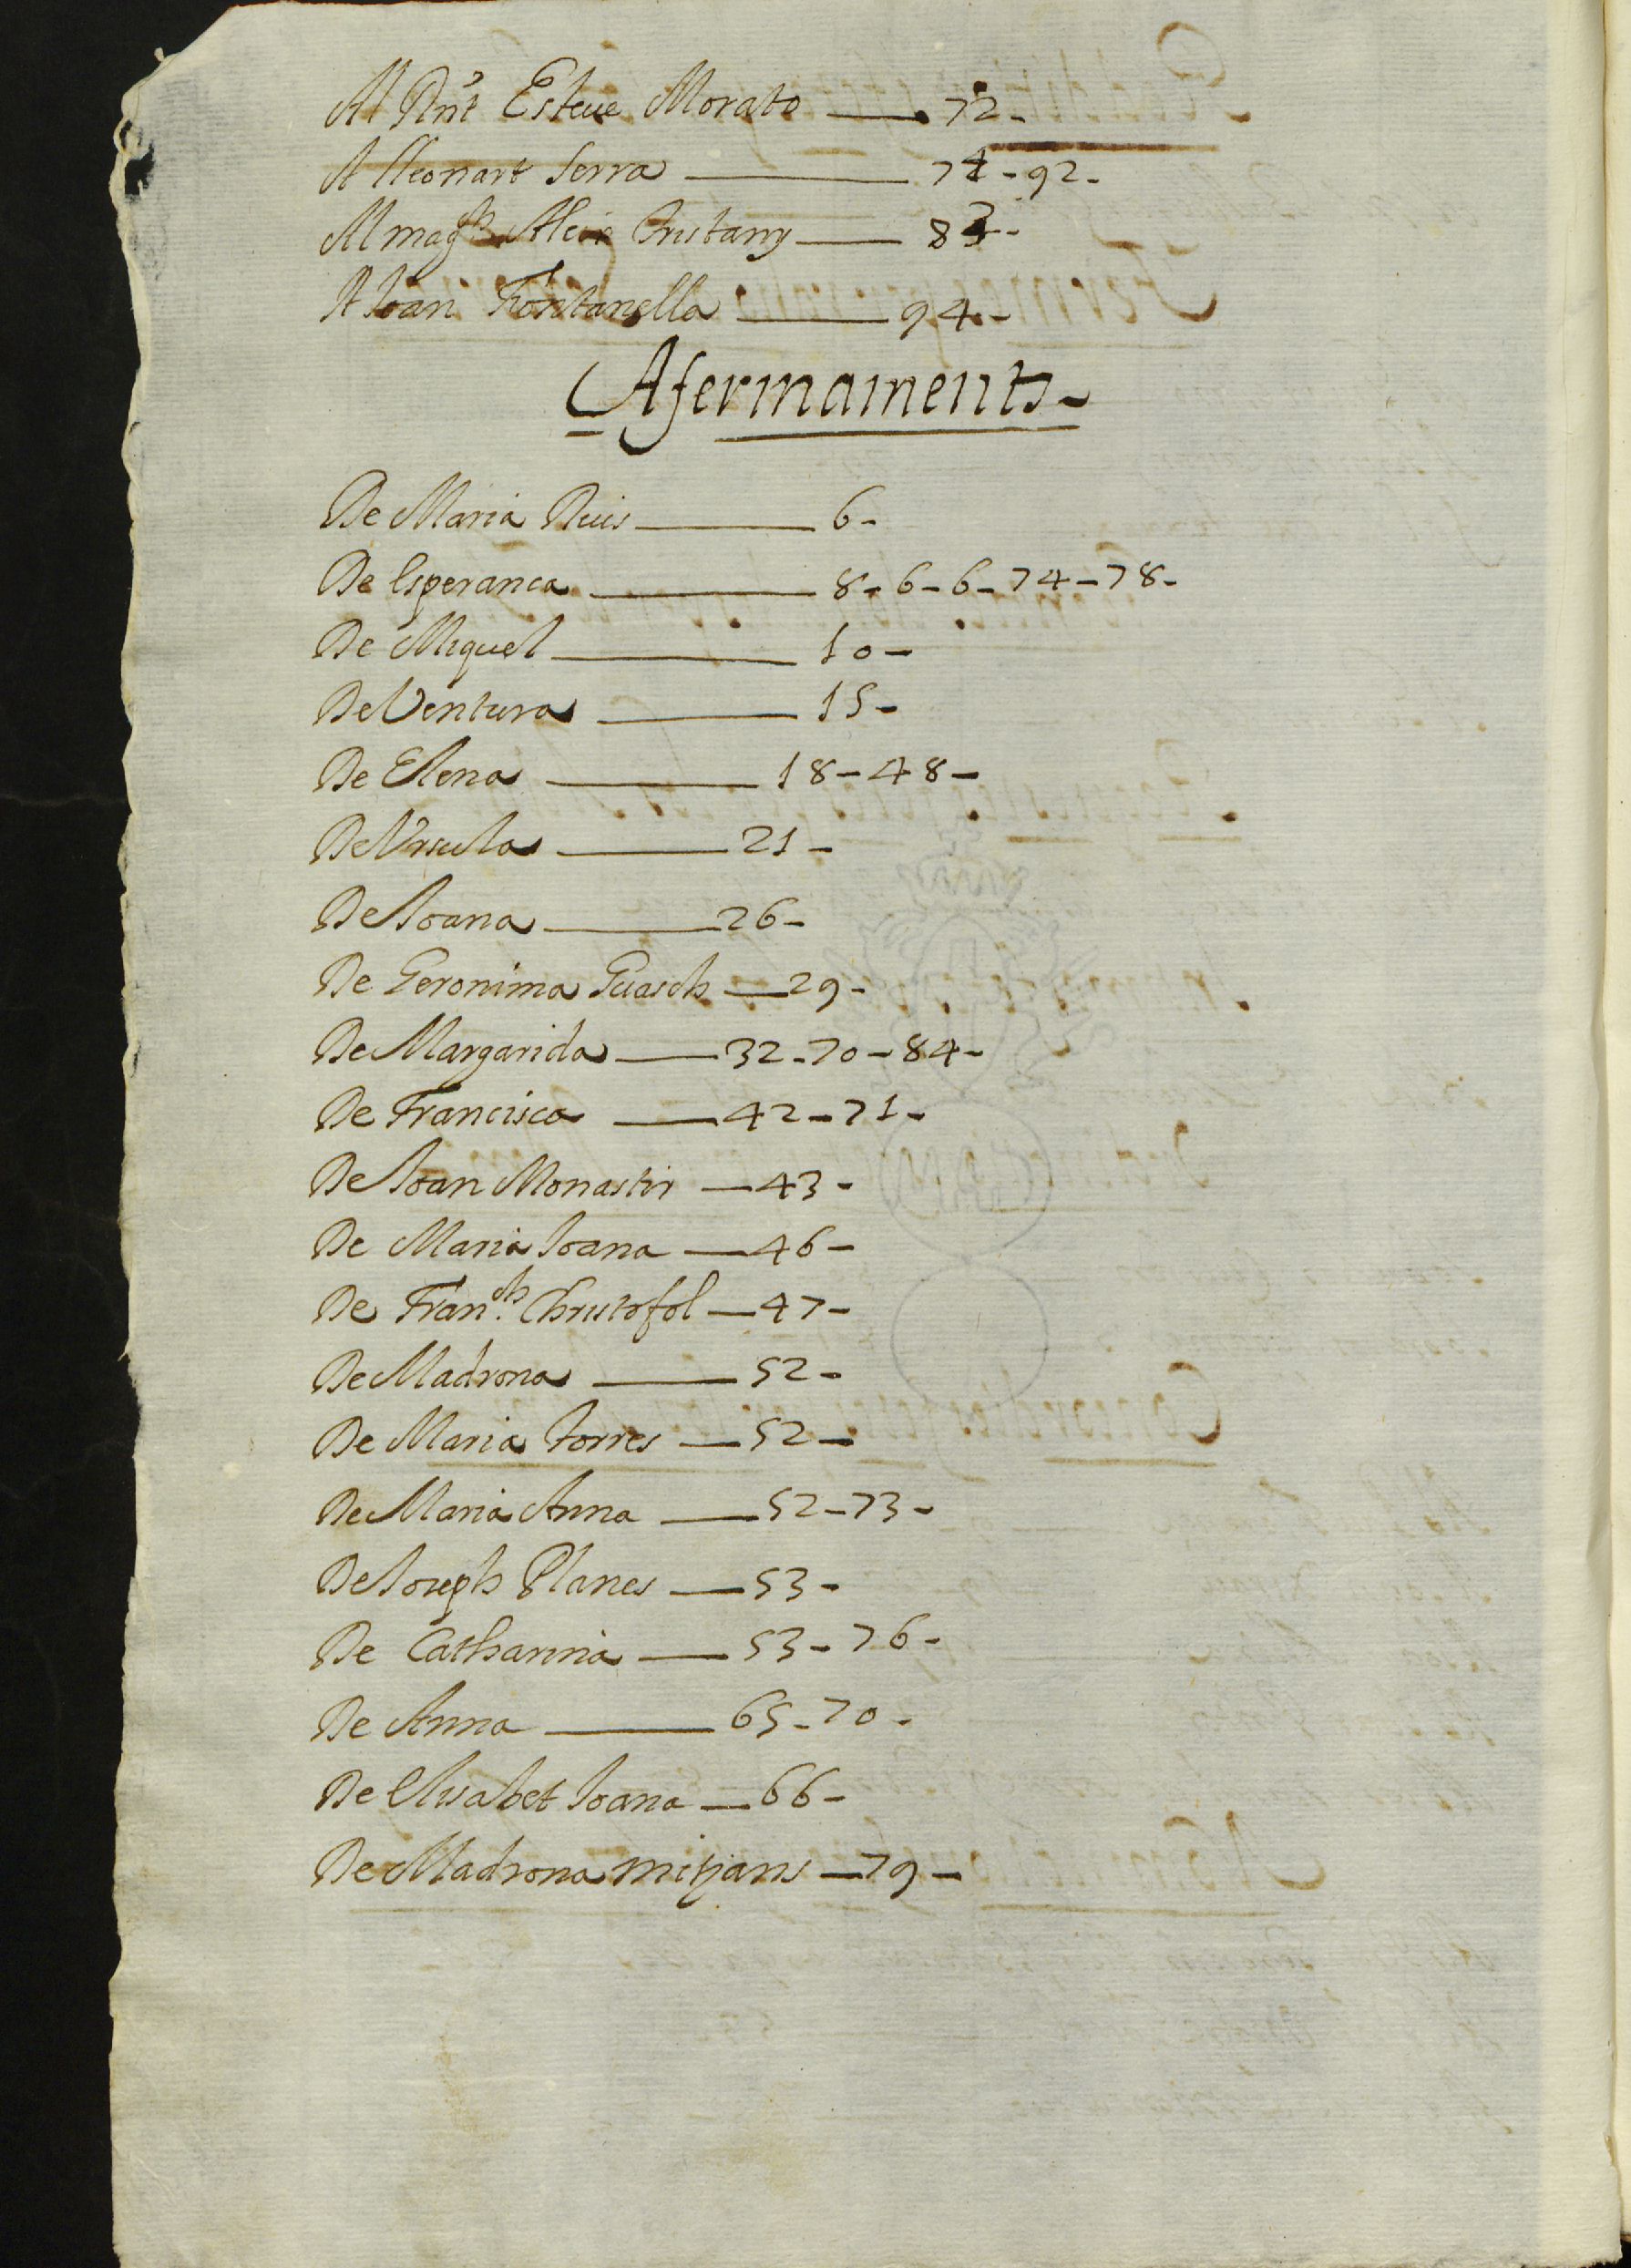 Al Rnt Esteue Morato — 72 -
A lleonart Serra — 74 - 92 -
Al magch Aleix Tristany — 83 -
A Ioan Fontanella — 94 -
Afermaments -
De Maria Rius — 6 -
De Esperanca — 8 - 6 - 6 - 74 - 78 -
De Miquel — 10 -
De Ventura — 15 -
De Elena — 18 - 48 -
De Vrsula — 21 -
De Ioana — 26 -
De Geronima Guasch — 29 -
De Margarida — 32 - 70 - 84 -
De Francisca — 42 - 71 -
De Ioan Monastir — 43 -
De Maria Ioana — 46 -
De Fran.ch Christofol — 47 -
De Madrona — 52 -
De Maria Torres — 52 -
De Maria Anna — 52 - 73 -
De Ioseph Planes — 53 -
De Catharina — 53 - 76 -
De Anna — 65 - 70 -
De Elisabet Ioana — 66 -
De Madrona mitjans — 79 -